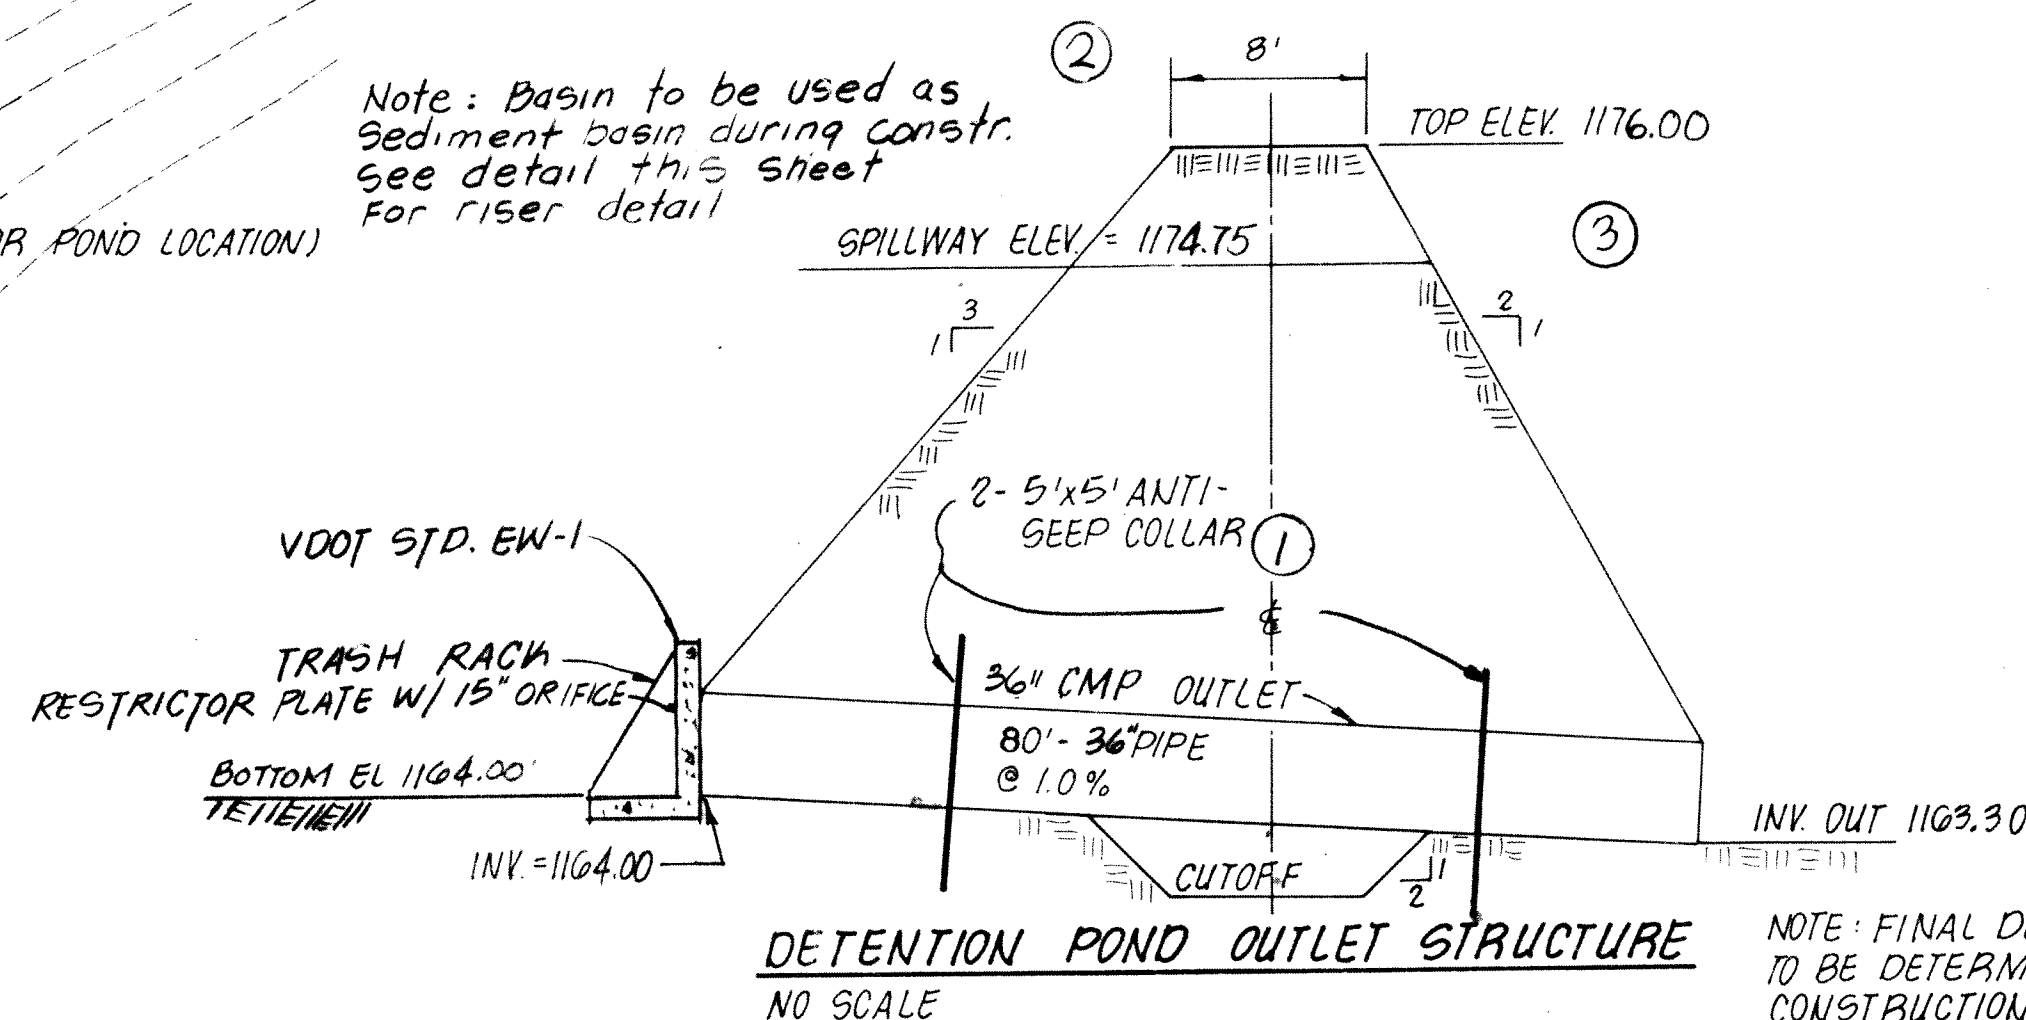 2
8'
Note: Basin to be used as
Sediment basin during constr.
See detail this sheet
For riser detail
TOP ELEV. 1176.00
POND LOCATION)
SPILLWAY ELEV. = 1174.75
3
3
1
2
1
2- 5'x5' ANTI-
SEEP COLLAR
1
VDOT STD. EW-1
℄
TRASH RACK
RESTRICTOR PLATE W/ 15" ORIFICE
36" CMP OUTLET
80'- 36" PIPE
@ 1.0%
BOTTOM EL 1164.00'
INV. OUT 1163.30
INV. =1164.00
CUTOFF
1
2
DETENTION POND OUTLET STRUCTURE
NO SCALE
NOTE: FINAL
TO BE
CONSTRUCTION